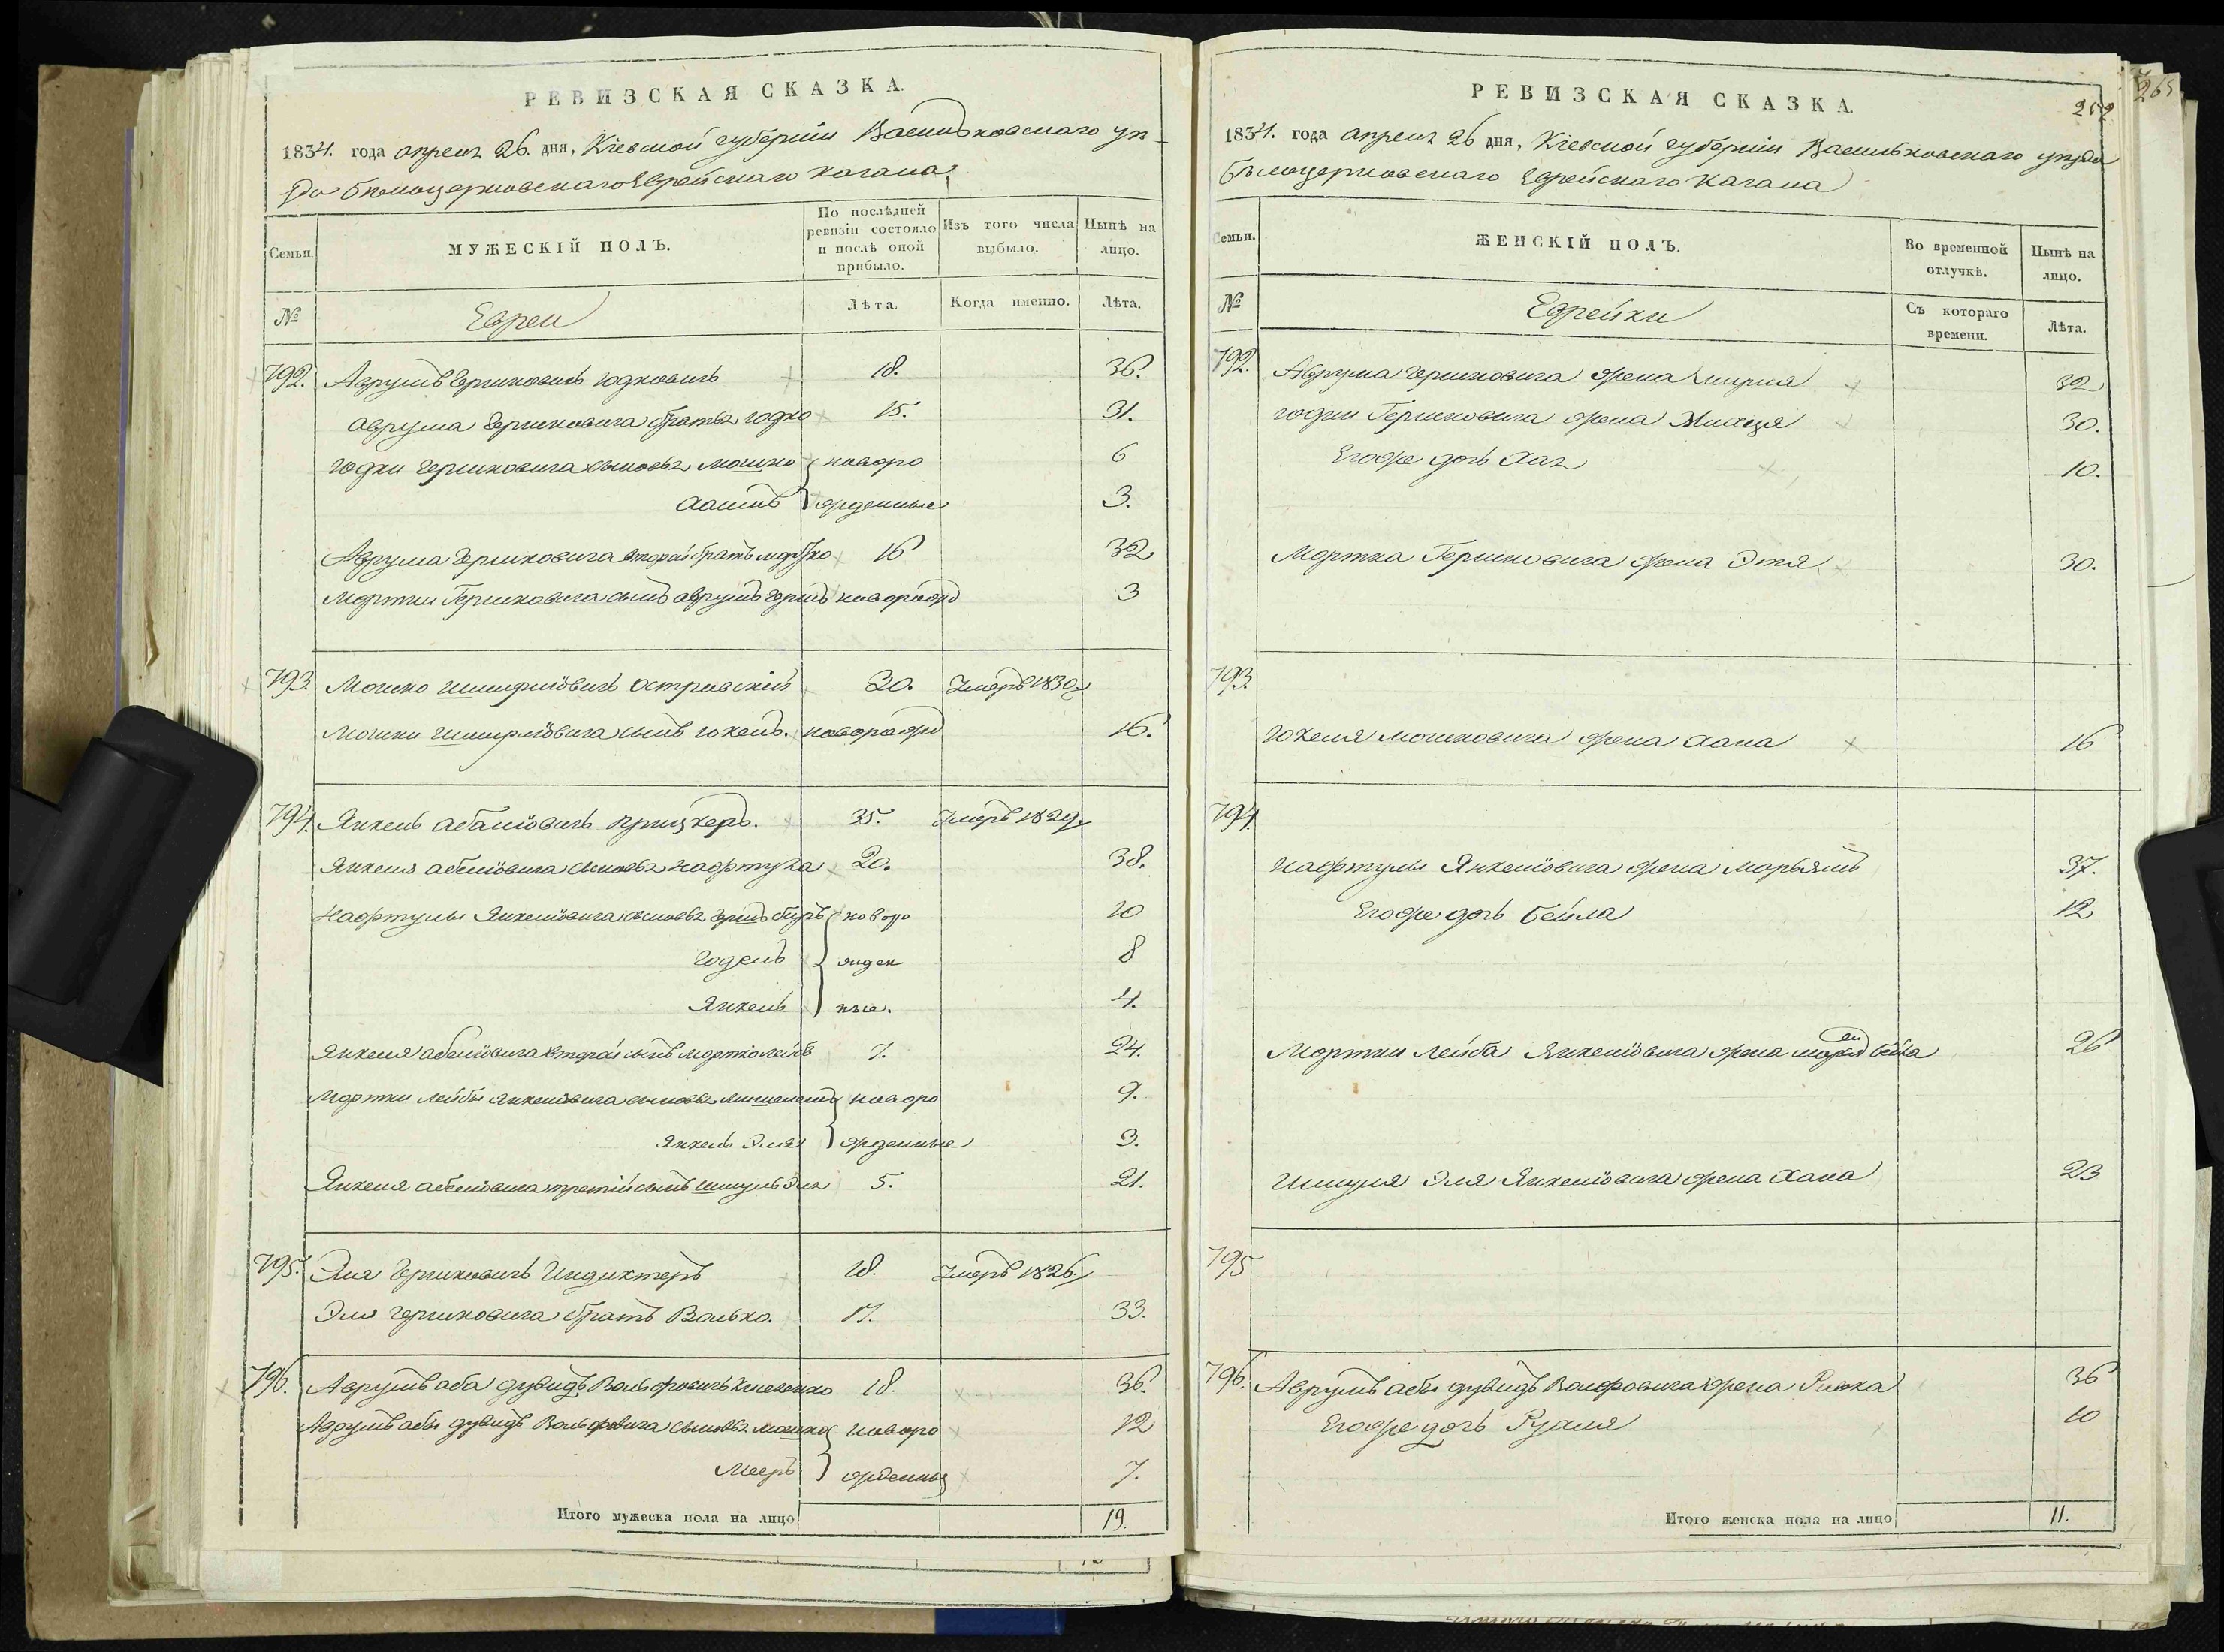 РЕВИЗСКАЯ СКАЗКА.
1834. года апреля 26. дня, Кіевской губерніи Васильковскаго уѣ-
зда Бѣлоцерковскаго Еврейскаго Кагала
Семьи.
МУЖЕСКІЙ ПОЛЪ.
По послѣдней ревизіи состояло и послѣ оной прибыло.
Изъ того числа выбыло.
Нынѣ на лицо.
№
Евреи
Лѣта.
Когда именно.
Лѣта.
792. Аврумъ Гершковичь Юдковичь 18. 36.
Аврума Гершковича братья Юдко 15. 31.
Юдки Гершковича сыновья Мошко новоро 6
жденные 3.
Аврума Гершковича второй братъ Мортко 16 32
Мортки Гершковича сынъ Аврумъ Гершъ новорожд 3
793. Мошко Шмирлiовичь Островскій 30. Умеръ 1830
Мошки Шмирлiовича сынъ Юкель. новорожд 16.
794. Янкель Абалiовичь Прицкеръ. 35. Умеръ 1829
Янкеля Абелiовича сыновья Нафтула 20. 38.
Нафтулы Янкелiовича сыновья Гершъ Беръ новоро 10
Юдель жден 8
Янкель ные. 4.
Янкеля Абелiовича второй сынъ Мортко Лейба 7. 24.
Мортки Лейбы Янкелiовича сыновья новоро 9.
Янкель Эля жденные 3.
Янкеля Абелiовича третій сынъ Шмуль Эля 5. 21.
795. Эля Гершковичь Индиктеръ 18. Умеръ 1826.
Эли Гершковича братъ Волько. 17. 33.
796. Аврумъ Аба Дувидъ Вольфовичь 18. 36.
Аврумъ Абы Дувидъ Вольфовича сыновья Мошко новоро 12
Мееръ жденныя 7.
Итого мужеска пола на лицо 19.
РЕВИЗСКАЯ СКАЗКА.
252
265
1834. года апреля 26 дня, Кіевской губерніи Васильковскаго уѣзда
Бѣлоцерковскаго Еврейскаго Кагала
Семьи.
ЖЕНСКІЙ ПОЛЪ.
Во временной отлучкѣ.
Нынѣ на лицо.
№
Еврейки
Съ котораго времени.
Лѣта.
792. Аврума Гершковича жена 32
Юдки Гершковича жена 30.
Егоже дочь Хая 10.
Мортка Гершковича жена Этя 30.
793.
Юкеля Мошковича жена Хана 16
794.
Нафтулы Янкелiовича жена Марьямъ 37.
Егоже дочь Бейла 12
Мортки Лейба Янкелiовича жена Бейла 26
Шмуля Эля Янкелiовича жена Хана 23
795
796. Аврумъ Абы Дувидъ Волфовича жена Ривка 36
Егоже дочь Рухля 10
Итого женска пола на лицо 11.